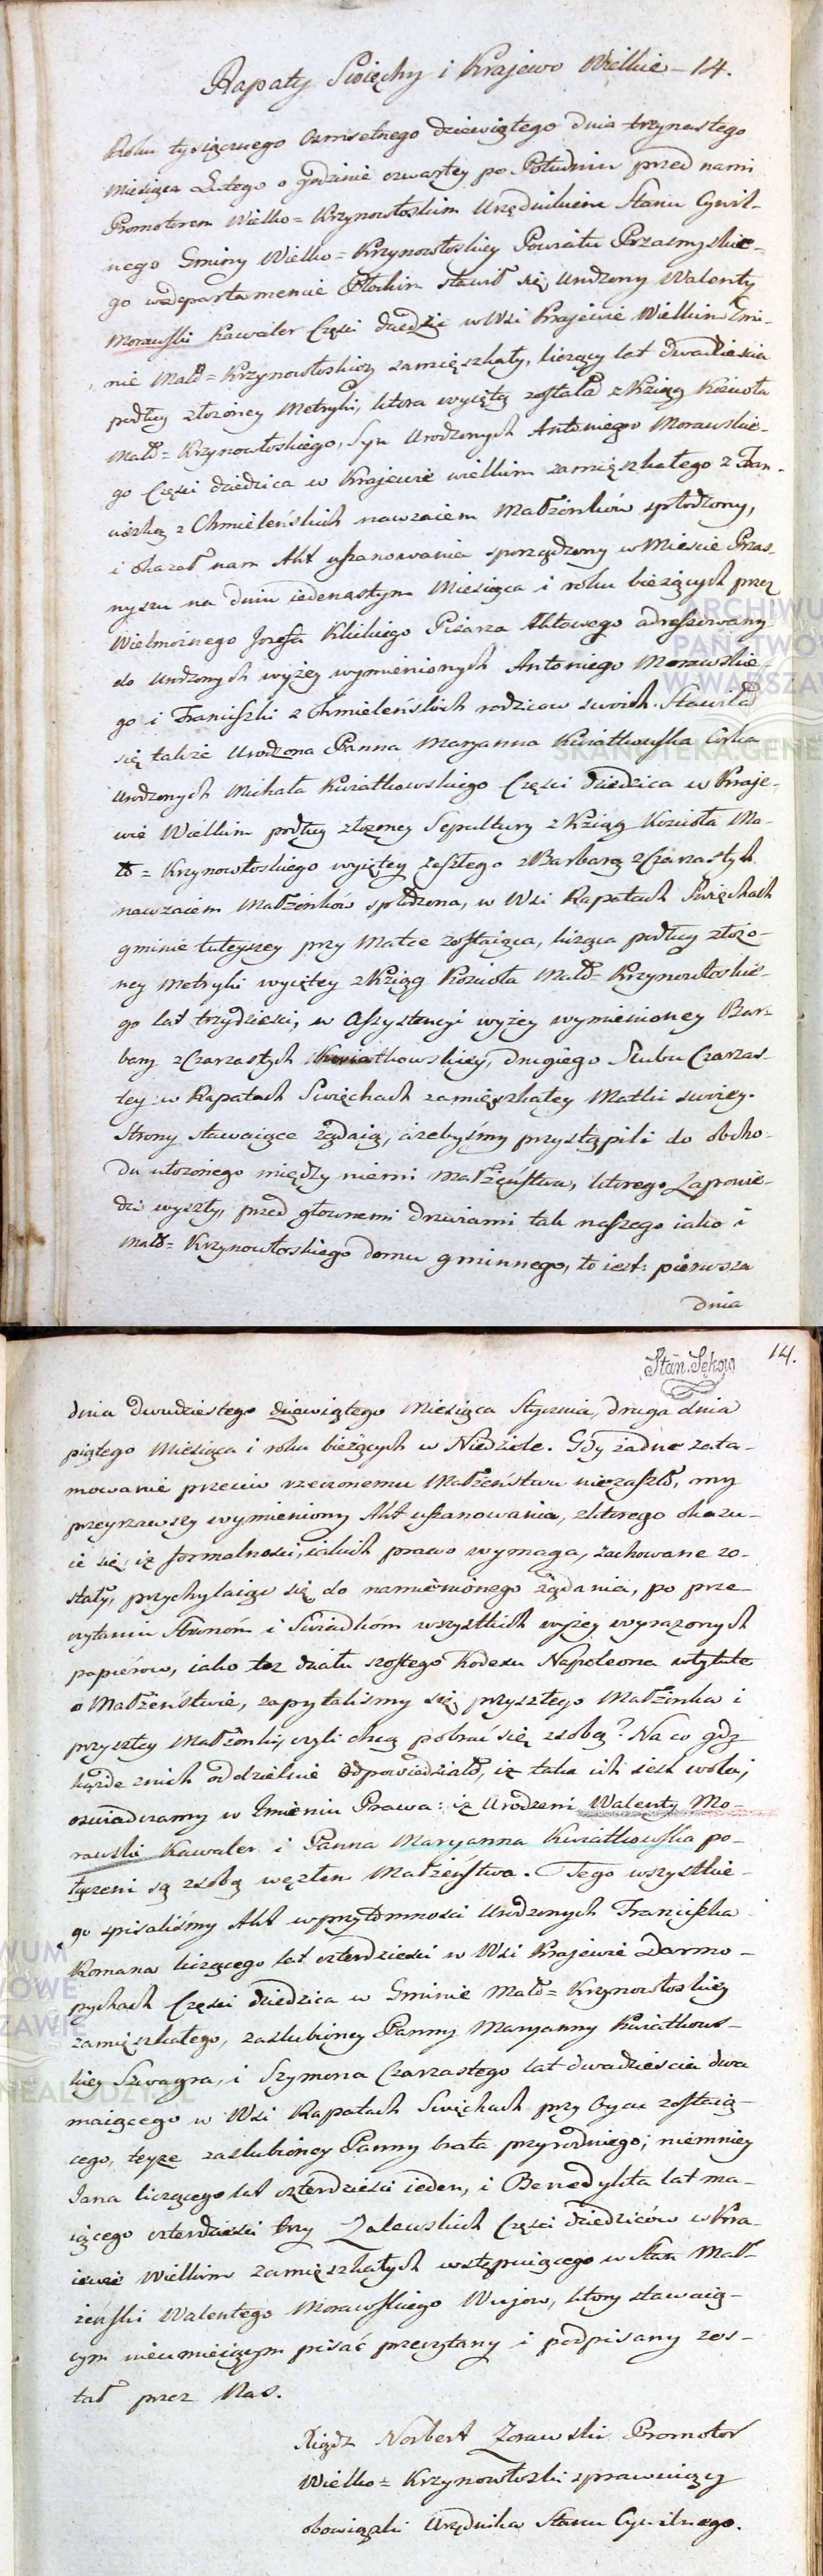 Rapaty Swięchy i Krajewo Wielkie – 14.
Roku tysiącznego Osmsetnego dziewiątego dnia trzynastego
Miesiąca Lutego o godzinie czwartey po Południu przed nami
Promotorem Wielko = Krzynowłoskim Urzędnikiem Stanu Cywil-
nego Gminy Wielko = Krzynowłoskiey Powiatu Przasnyskie-
go w departamencie Płockim stawił się Urodzony Walenty
Morawski Kawaler Części dziedzic w Wsi Krajewie Wielkim Gmi-
nie Mało = Krzynowłoskiey zamięszkały, liczący lat dwadzieścia
podług złożoney Metryki, ktora wyciętą została z Ksiąg Kościoła
Mało = Krzynowłoskiego, Syn Urodzonych Antoniego Morawskie-
go Części dziedzica w Krajewie wielkim zamięszkałego z Fran-
ciszką z Chmieleńskich nawzaiem Małżonków spłodzony,
i okazał nam Akt uszanowania sporządzony w Mieście Przas-
nyszu na dniu iedenastym Miesiąca i roku bieżących przez
Wielmożnego Jozefa Klickiego Pisarza Aktowego adressowany
do Urodzonych wyżey wymienionych Antoniego Morawskie-
go i Franciszki z Chmieleńskich rodzicow swoich. Stawiła
się także Urodzona Panna Maryanna Kwiatkowska Corka
Urodzonych Michała Kwiatkowskiego Części dziedzica w Kraje-
wie Wielkim podług złożoney Sepultury z Ksiąg Kościoła Ma-
ło = Krzynowłoskiego wyciętey zeszłego z Barbarą z Czarzastych
nawzaiem Małżonków spłodzona, w Wsi Rapatach Swięchach
gminie tuteyszey przy Matce zostaiąca, licząca podług złożo-
ney Metryki wyciętey z Ksiąg Kościoła Mało = Krzynowłoskie-
go lat trzydzieści, w Assystencyi wyżey wymienioney Bar-
bary z Czarzastych Kwiatkowskiey, drugiego Slubu Czarzas-
tey w Rapatach Swięchach zamięszkałey Matki swoiey.
Strony stawaiące żądaią, ażebyśmy przystąpili do obcho-
du ułożonego między niemi Małżeństwa, ktorego Zapowie-
dzi wyszły, przed głownemi drzwiami tak naszego iako i
Mało = Krzynowłoskiego domu gminnego, to iest: pierwsza
dnia
Stan. Sękow
14.
dnia dwudziestego dziewiątego Miesiąca Stycznia, druga dnia
piątego Miesiąca i roku bieżących w Niedziele. Gdy żadne zata-
mowanie przeciw rzeczonemu Małżeństwu niezaszło, my
przeyrzawszy wymieniony Akt uszanowania, z ktorego okazu-
ie się, iż formalności, iakich prawo wymaga, zachowane zo-
stały, przychylaiąc się do namienionego żądania, po prze-
czytaniu Stronóm i Świadkóm wszystkich wyżey wyrażonych
papierow, iako też działu szostego Kodexu Napoleona w tytule
o Małżeństwie, zapytaliśmy się przyszłego Małżonka i
przyszłey Małżonki, czyli chcą pobrać się z sobą? Na co gdy
każde z nich oddzielnie odpowiedziało, iż taka ich iest wola;
oświadczamy w Imieniu Prawa: iż Urodzeni Walenty Mo-
rawski Kawaler i Panna Maryanna Kwiatkowska po-
łączeni są z sobą węzłem Małżeństwa. Tego wszystkie-
go spisaliśmy Akt w przytomności Urodzonych Franciszka
Romana liczącego lat czterdzieści w Wsi Krajewie Darmo-
pychach Części dziedzica w Gminie Mało = Krzynowłoskiey
zamięszkałego, zaslubioney Panny Maryanny Kwiatkows-
kiey Szwagra, i Szymona Czarzastego lat dwadzieścia dwa
maiącego w Wsi Rapatach Swięchach przy Oycu zostaią-
cego, teyże zaslubioney Panny brata przyrodniego; niemniey
Jana liczącego lat czterdzieści ieden, i Benedykta lat ma-
iącego czterdzieści trzy Zalewskich Części dziedziców w Kra-
iewie Wielkim zamięszkałych wstępuiącego w Stan Mał-
żeński Walentego Morawskiego Wujow, ktory stawaią-
cym nieumieiącym pisać przeczytany i podpisany zos-
tał przez Nas.
Xiądz Norbert Zorawski Promotor
Wielko = Krzynowłoski sprawuiący
obowiązki Urzędnika Stanu Cywilnego.